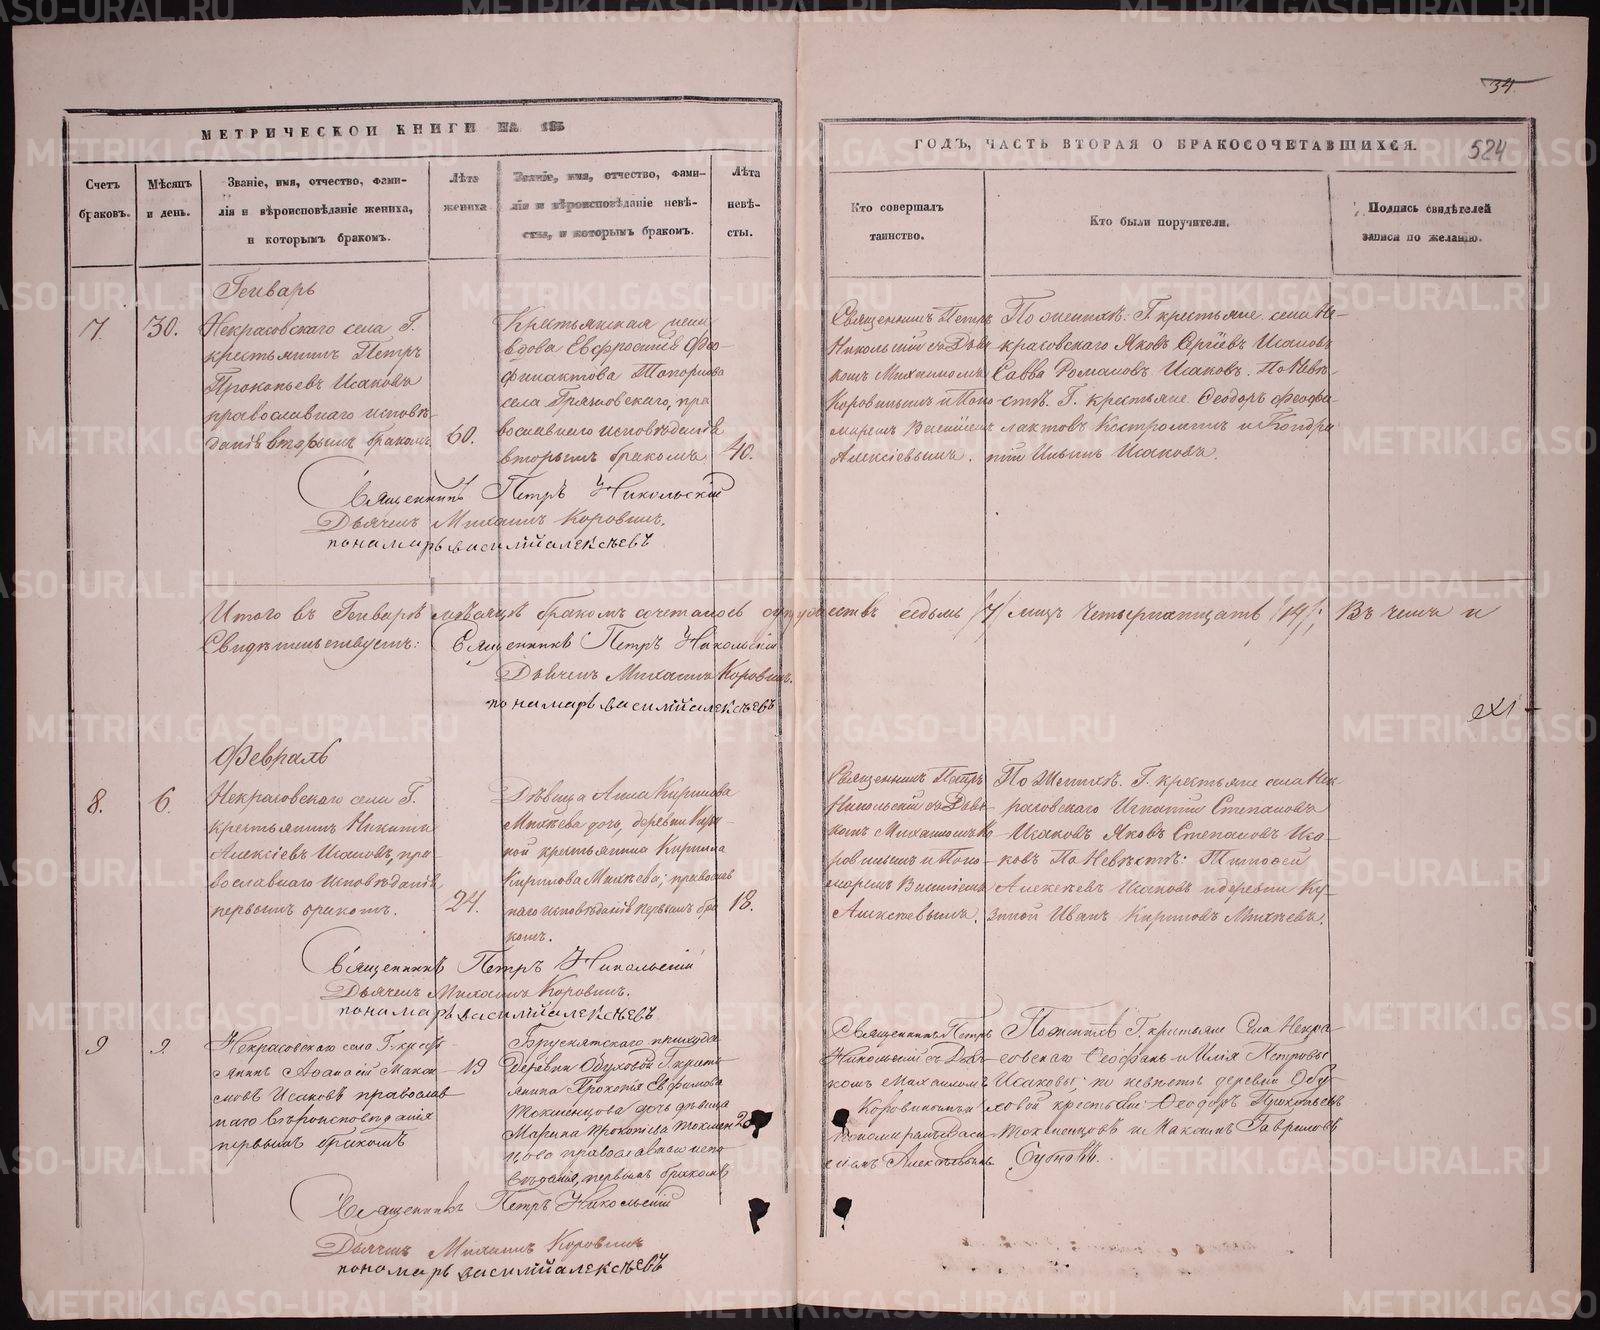 34
МЕТРИЧЕСКОЙ КНИГИ НА 185
ГОДЪ, ЧАСТЬ ВТОРАЯ О БРАКОСОЧЕТАВШИХСЯ.
524
Счетъ браковъ.
Мѣсяцъ и день.
Званіе, имя, отчество, фами-
лія и вѣроисповѣданіе жениха,
и которымъ бракомъ.
Лѣта жениха
Званіе, имя, отчество, фами-
лія и вѣроисповѣданіе невѣ-
сты, и которымъ бракомъ.
Лѣта невѣ-
сты.
Кто совершалъ
таинство.
Кто были поручители.
Подпись свидѣтелей
записи по желанію.
Генварь
7.
30.
Некрасовскаго села Г.
крестьянинъ Петръ
Прокопьевъ Исаковъ
православнаго исповѣ-
данія вторымъ бракомъ
60.
Крестьянская
вдова Евфросинія Фео-
филактова Топоркова
села Грязновскаго, пра
вославнаго исповѣданія
вторымъ бракомъ
40.
Священникъ Петръ
Никольскій съ Дьяч
комъ Михаиломъ
Коровинымъ и Поно
маремъ Василіемъ
Алексіевымъ.
По женихѣ: Г. крестьяне села Не-
красовскаго Яковъ Сергіевъ Исаковъ
Савва Романовъ Исаковъ. По невѣ-
стѣ. Г. крестьяне Ѳеодоръ Феофи
лактовъ Костроминъ и Кондра
тій Ильинъ Исаковъ.
Священникъ Петръ Никольскій
Дьячекъ Михаилъ Коровинъ.
пономарь василій алексѣевъ
Итого въ Генварѣ мѣсяцѣ бракомъ сочеталось супружествъ седьмь /7/ лицъ четырнатцать /14/; Въ чемъ и
Свидѣтельствуетъ: Священникъ Петръ Никольскій
Дьячекъ Михаилъ Коровинъ.
пономарь василій алексѣевъ
Февраль
8.
6.
Некрасовскаго села Г.
крестьянинъ Никита
Алексіевъ Исаковъ, пра-
вославнаго исповѣданія
первымъ бракомъ.
24.
Дѣвица Анна Кирилова
Михѣева дочь, деревни Кузи-
ной крестьянина Кирилла
Кирилова Михѣева; православ
наго исповѣданія первымъ бра
комъ.
18.
Священникъ Петръ
Никольскій съ Дьяч-
комъ Михаиломъ Ко
ровинымъ и Поно-
маремъ Василіемъ
Алексѣевымъ.
По Женихѣ. Г. крестьяне села Нек-
расовскаго Игнатій Степановъ
Исаковъ Яковъ Степановъ Иса-
ковъ По Невѣстѣ: Тимоѳей
Алексѣевъ Исаковъ и деревни Ку-
зиной Иванъ Кириловъ Михѣевъ.
Священникъ Петръ Никольскій
Дьячекъ Михаилъ Коровинъ.
пономарь василій алексѣевъ
9
9.
Некрасовскаго села Г. кресть
янинъ Аѳанасій Макси
мовъ Исаковъ православ
наго вѣроисповѣданія
первымъ бракомъ
19
Бруснятскаго прихода
деревни Обуховой Г. кресть
янина Прокопія Евфимова
Токменцова дочь дѣвица
Марина Прокопіева Токмен
цова православнаго испо
вѣданія, первымъ бракомъ
Священникъ Петръ
Никольскій съ Дьяч-
комъ Михаиломъ
Коровинымъ и
пономаремъ Васи
ліемъ Алексѣевымъ
По женихѣ Г. крестьяне Села Некра-
совскаго Ѳеофанъ и Илія Петровы
Исаковы; по невѣстѣ деревни Обу-
ховой крестьяне Ѳеодоръ Прокопьевъ
Токменцовъ и Максимъ Гавриловъ
Священникъ Петръ Никольскій
Дьячекъ Михаилъ Коровинъ
пономарь василій алексѣевъ
METRIKI.GASO-URAL.RU